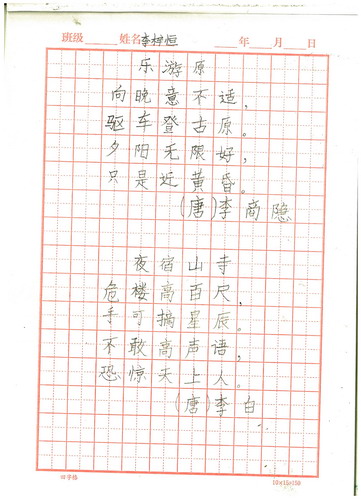 班级 姓名 李树恒 年 月 日
乐游原
向晚意不适，
驱车登古原。
夕阳无限好，
只是近黄昏。
（唐）李商隐
夜宿山寺
危楼高百尺，
手可摘星辰。
不敢高声语，
恐惊天上人。
（唐）李白
田字格 10×15=150